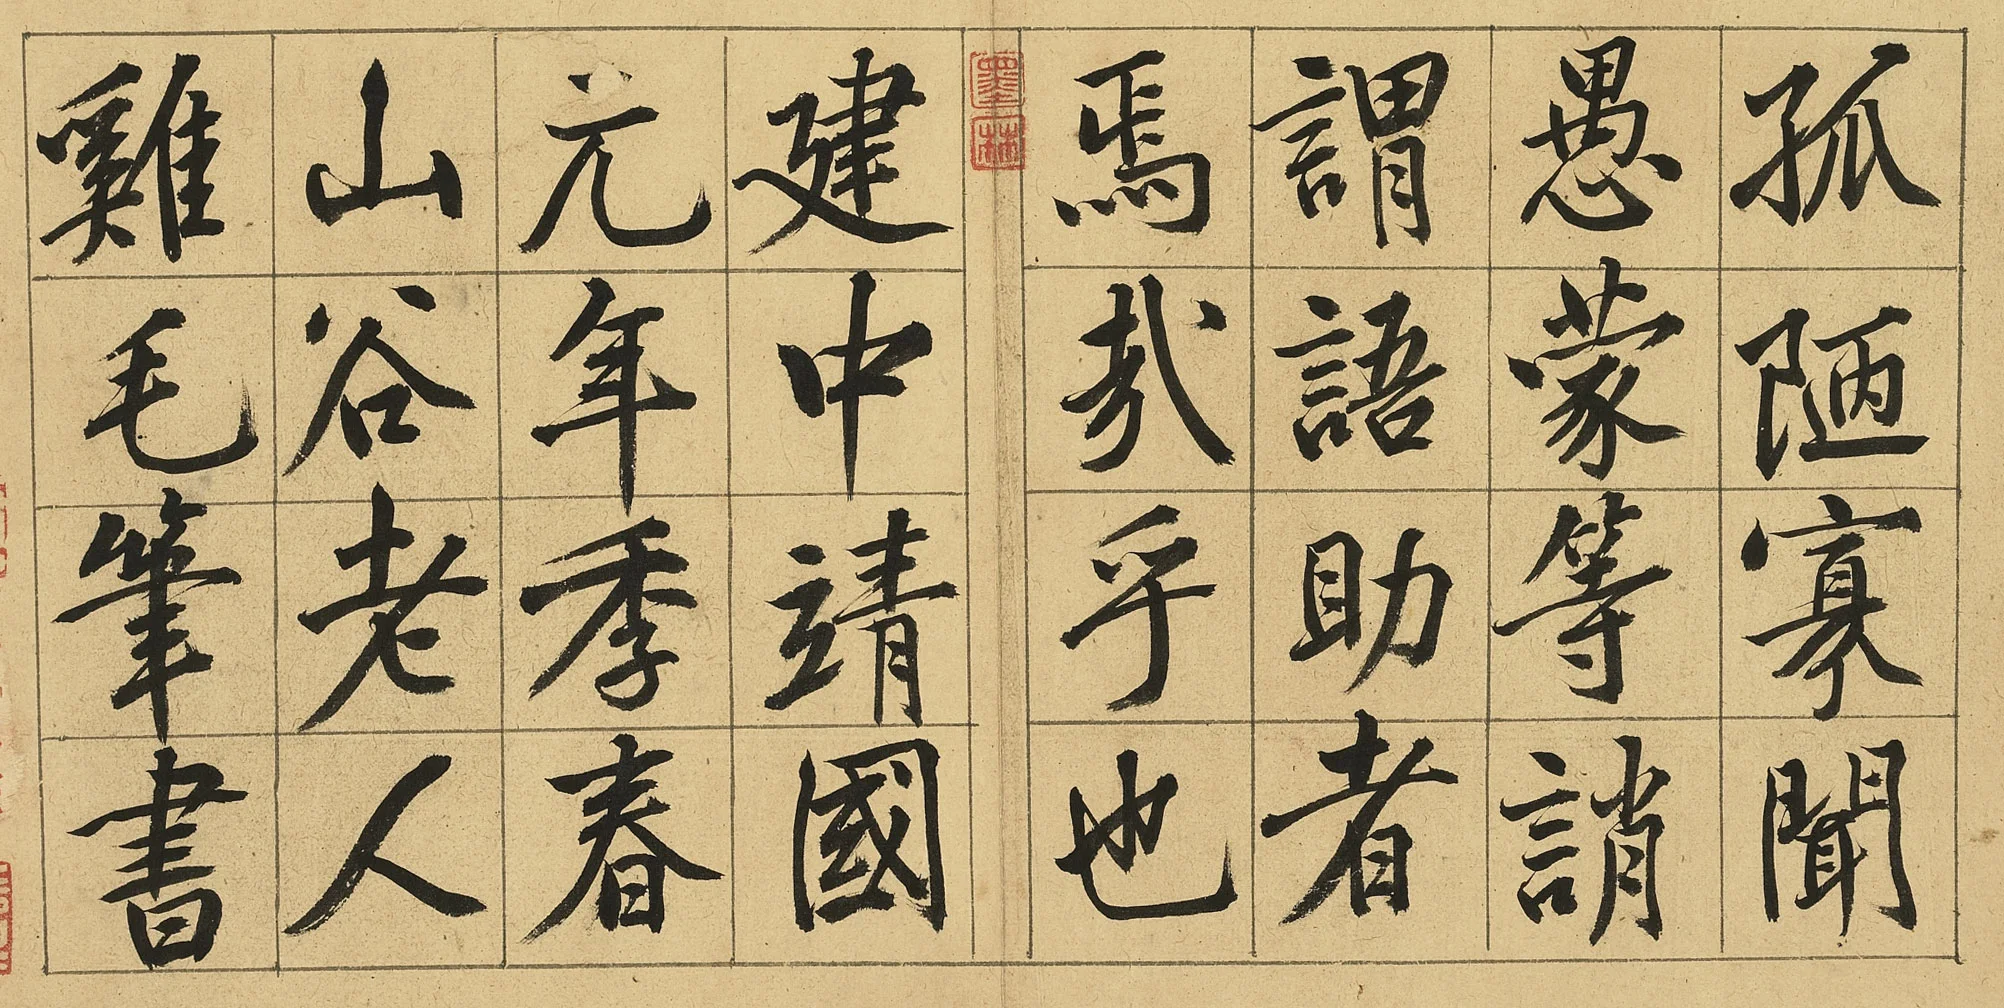 孤陋寡聞
愚蒙等誚
謂語助者
焉哉乎也
墨林
建中靖國
元年季春
山谷老人
雞毛筆書